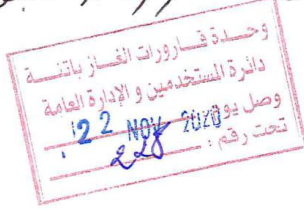 وحـــدة قـــارورات الغـــاز باتنـــة
دائرة المستخدمين و الإدارة العامة
وصل يوم: 22 NOV 2020
تحت رقم: 228